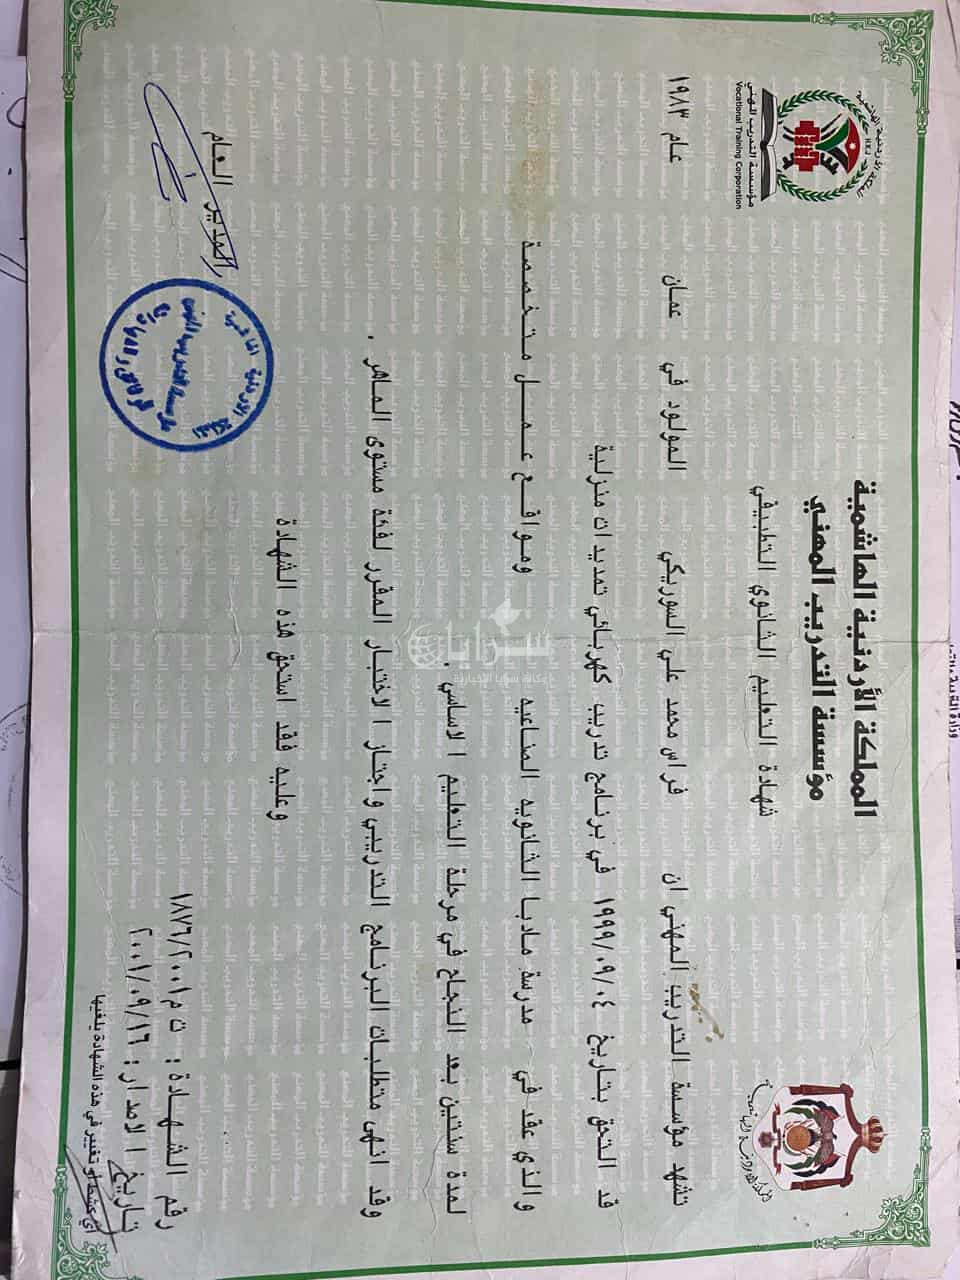 المملكة الأردنية الهاشمية
مؤسسة التدريب المهني
شهادة التعليم الثانوي التطبيقي
المملكة الأردنية الهاشمية
H.K.J
مؤسسة التدريب المهني
Vocational Training Corporation
تشهد مؤسسة التدريب المهني ان فراس محمد علي السوريكي المولود في عمان عام ١٩٨٣
قد التحق بتاريخ ١٩٩٩/٠٩/٠٤ في برنامج تدريب كهربائي تمديدات منزلية
والذي عقد في مدرسة مادبا الثانويه الصناعيه ومواقع عمل متخصصة
لمدة سنتين بعد النجاح في مرحلة التعليم الاساسي .
وقد انهى متطلبات البرنامج التدريبي واجتاز الاختبار المقرر لفئة مستوى الماهر .
وعليه فقد استحق هذه الشهادة
المدير العام
رقم الشهادة : ت م ١٨٧٦/٢٠٠١
تاريخ الاصدار : ٢٠٠١/٠٩/١٦
أي كشط أو تغيير في هذه الشهادة يلغيها
سرايا
وكالة سرايا الاخبارية